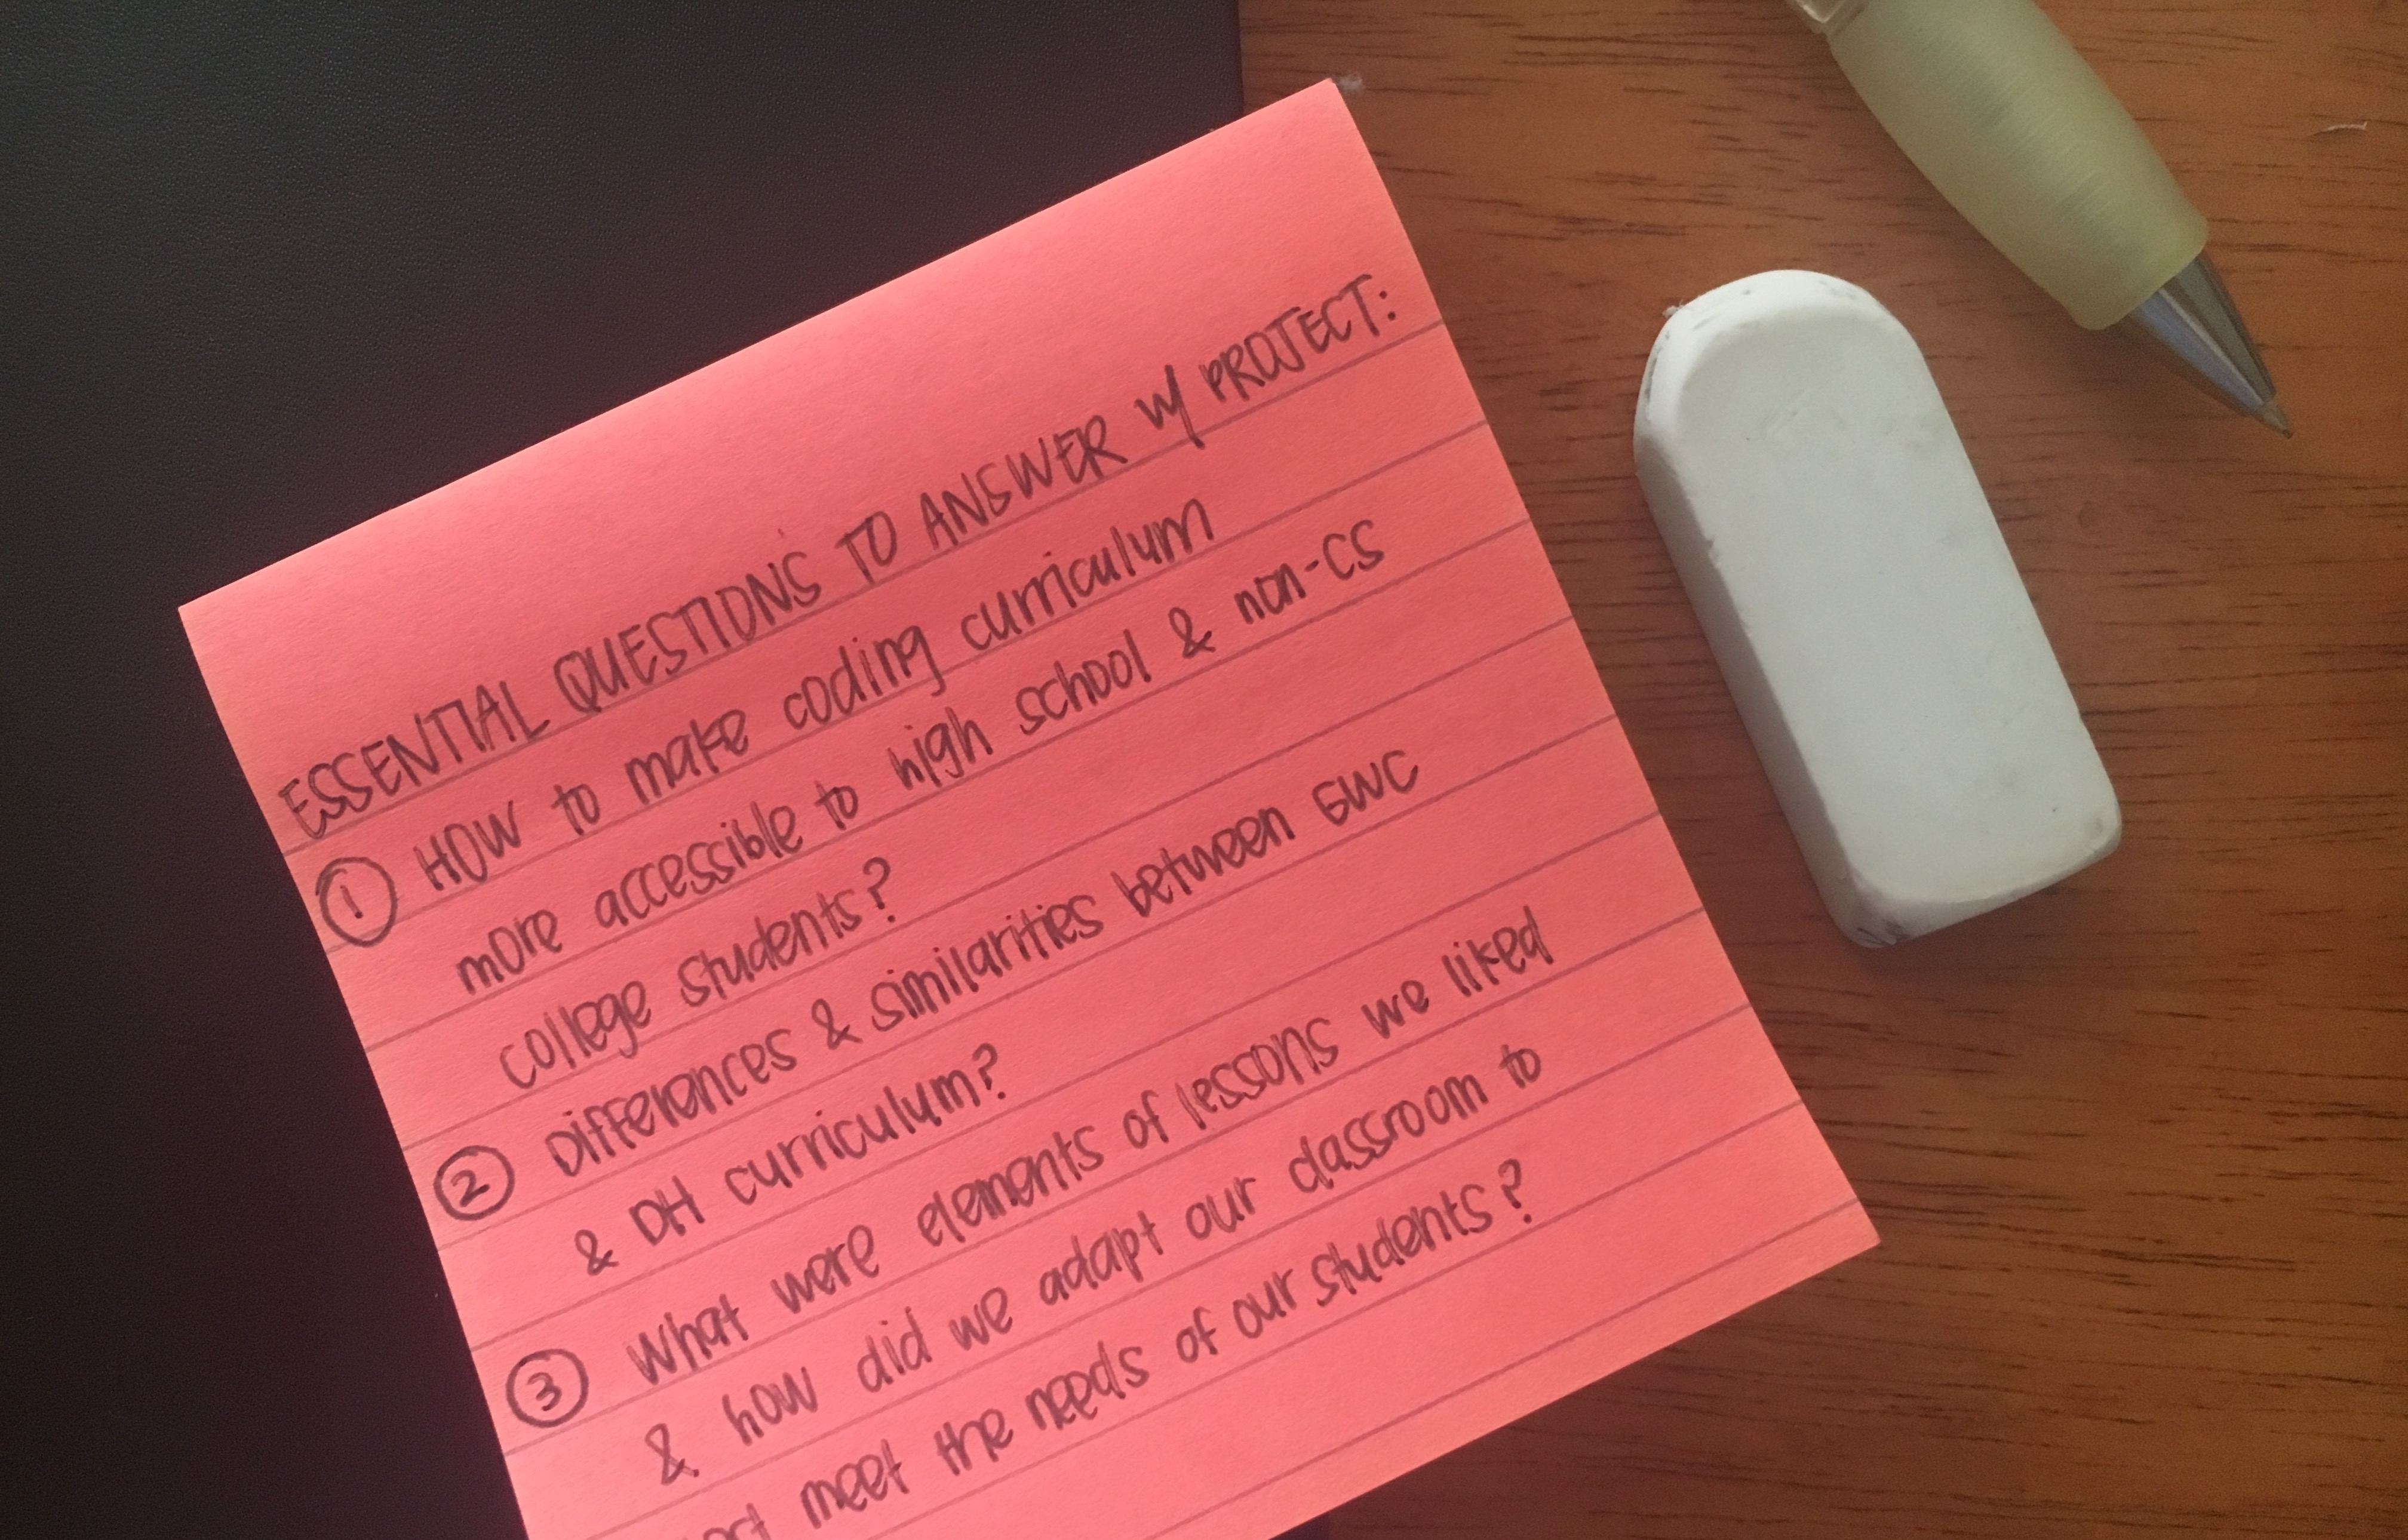 ESSENTIAL QUESTIONS TO ANSWER w/ PROJECT:
① HOW to make coding curriculum
more accessible to high school & non-CS
college students?
② Differences & similarities between GWC
& DH curriculum?
③ What were elements of lessons we liked
& how did we adapt our classroom to
meet the needs of our students?